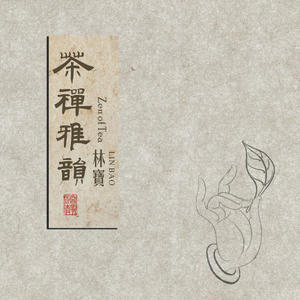 茶禪雅韻
Zen of Tea
林寶
LIN BAO